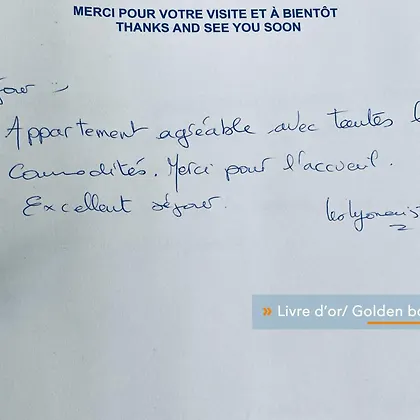 MERCI POUR VOTRE VISITE ET À BIENTÔT
THANKS AND SEE YOU SOON
jour :)
Appartement agréable avec toutes l
commodités. Merci pour l'accueil.
Excellent séjour.
» Livre d'or/ Golden bo